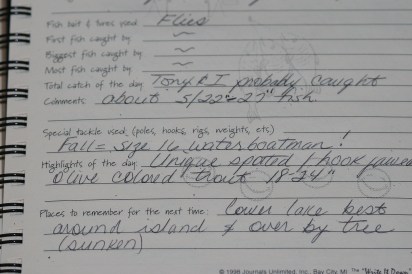 Fish bait & lures used Flies
First fish caught by ~
Biggest fish caught by ~
Most fish caught by ~
Total catch of the day Tony & I probably caught
Comments about 5/22"-27" fish
Special tackle used, (poles, hooks, rigs, weights, etc)
Fall = size 16 waterboatman!
Highlights of the day: Unique spoted / hook jawed
olive colored trout 18-24"
Places to remember for the next time: lower lake best
around island & over by tree
(sunken)
© 1998 Journals Unlimited, Inc., Bay City, MI The "Write It Down"